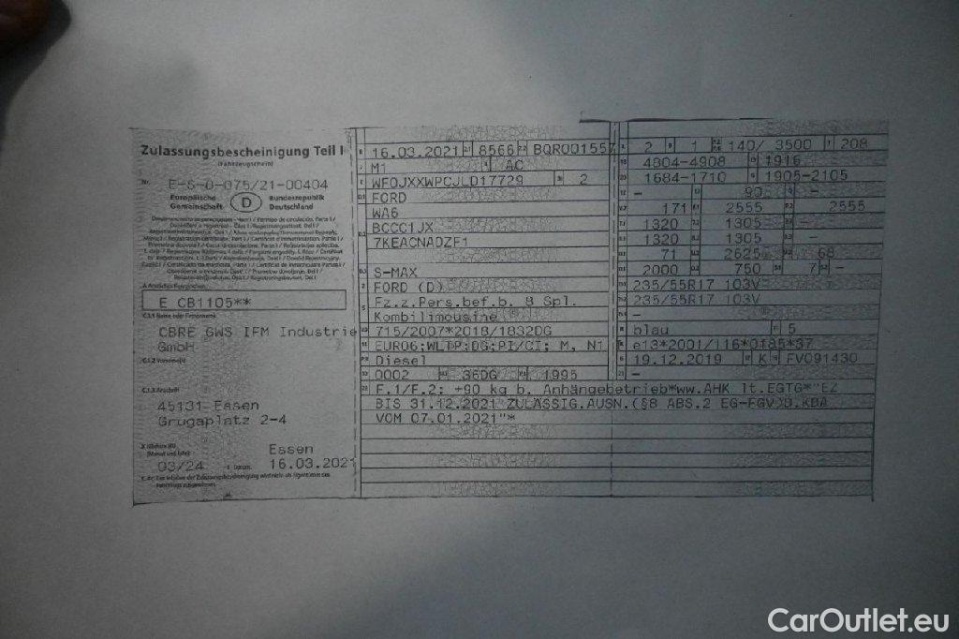 Zulassungsbescheinigung Teil I
(Fahrzeugschein)
Nr. E-S-0-075/21-00404
Europäische Gemeinschaft D Bundesrepublik Deutschland
A Amtliches Kennzeichen
E CB1105**
C.1.1 Name oder Firmenname
CBRE GWS IFM Industrie
GmbH
C.1.2 Vorname(n)
C.1.3 Anschrift
45131 Essen
Grugaplatz 2-4
Essen
03/24 16.03.2021
16.03.2021 8566 BQR001557
M1 AC
WF0JXXWPCJLD17729 2
FORD
WA6
BCCC1JX
7KEACNADZF1
S-MAX
FORD (D)
Fz.z.Pers.bef.b. 8 Spl.
Kombilimousine
715/2007*2018/1832DG
EURO6;WLTP;DG;PI/CI; M, N1
Diesel
0002 36DG 1995
F.1/F.2: +90 kg b. Anhängebetrieb*ww.AHK lt.EGTG*"EZ
BIS 31.12.2021 ZULÄSSIG.AUSN.(§8 ABS.2 EG-FGV)D.KBA
VOM 07.01.2021"*
2 1 140/ 3500 208
4804-4908 1916
1684-1710 1905-2105
- 90 -
171 2555 2555
1320 1305 -
1320 1305 -
71 2625 68
2000 750 7 -
235/55R17 103V
235/55R17 103V
-
blau 5
e13*2001/116*0185*37
19.12.2019 K FV091430
-
CarOutlet.eu